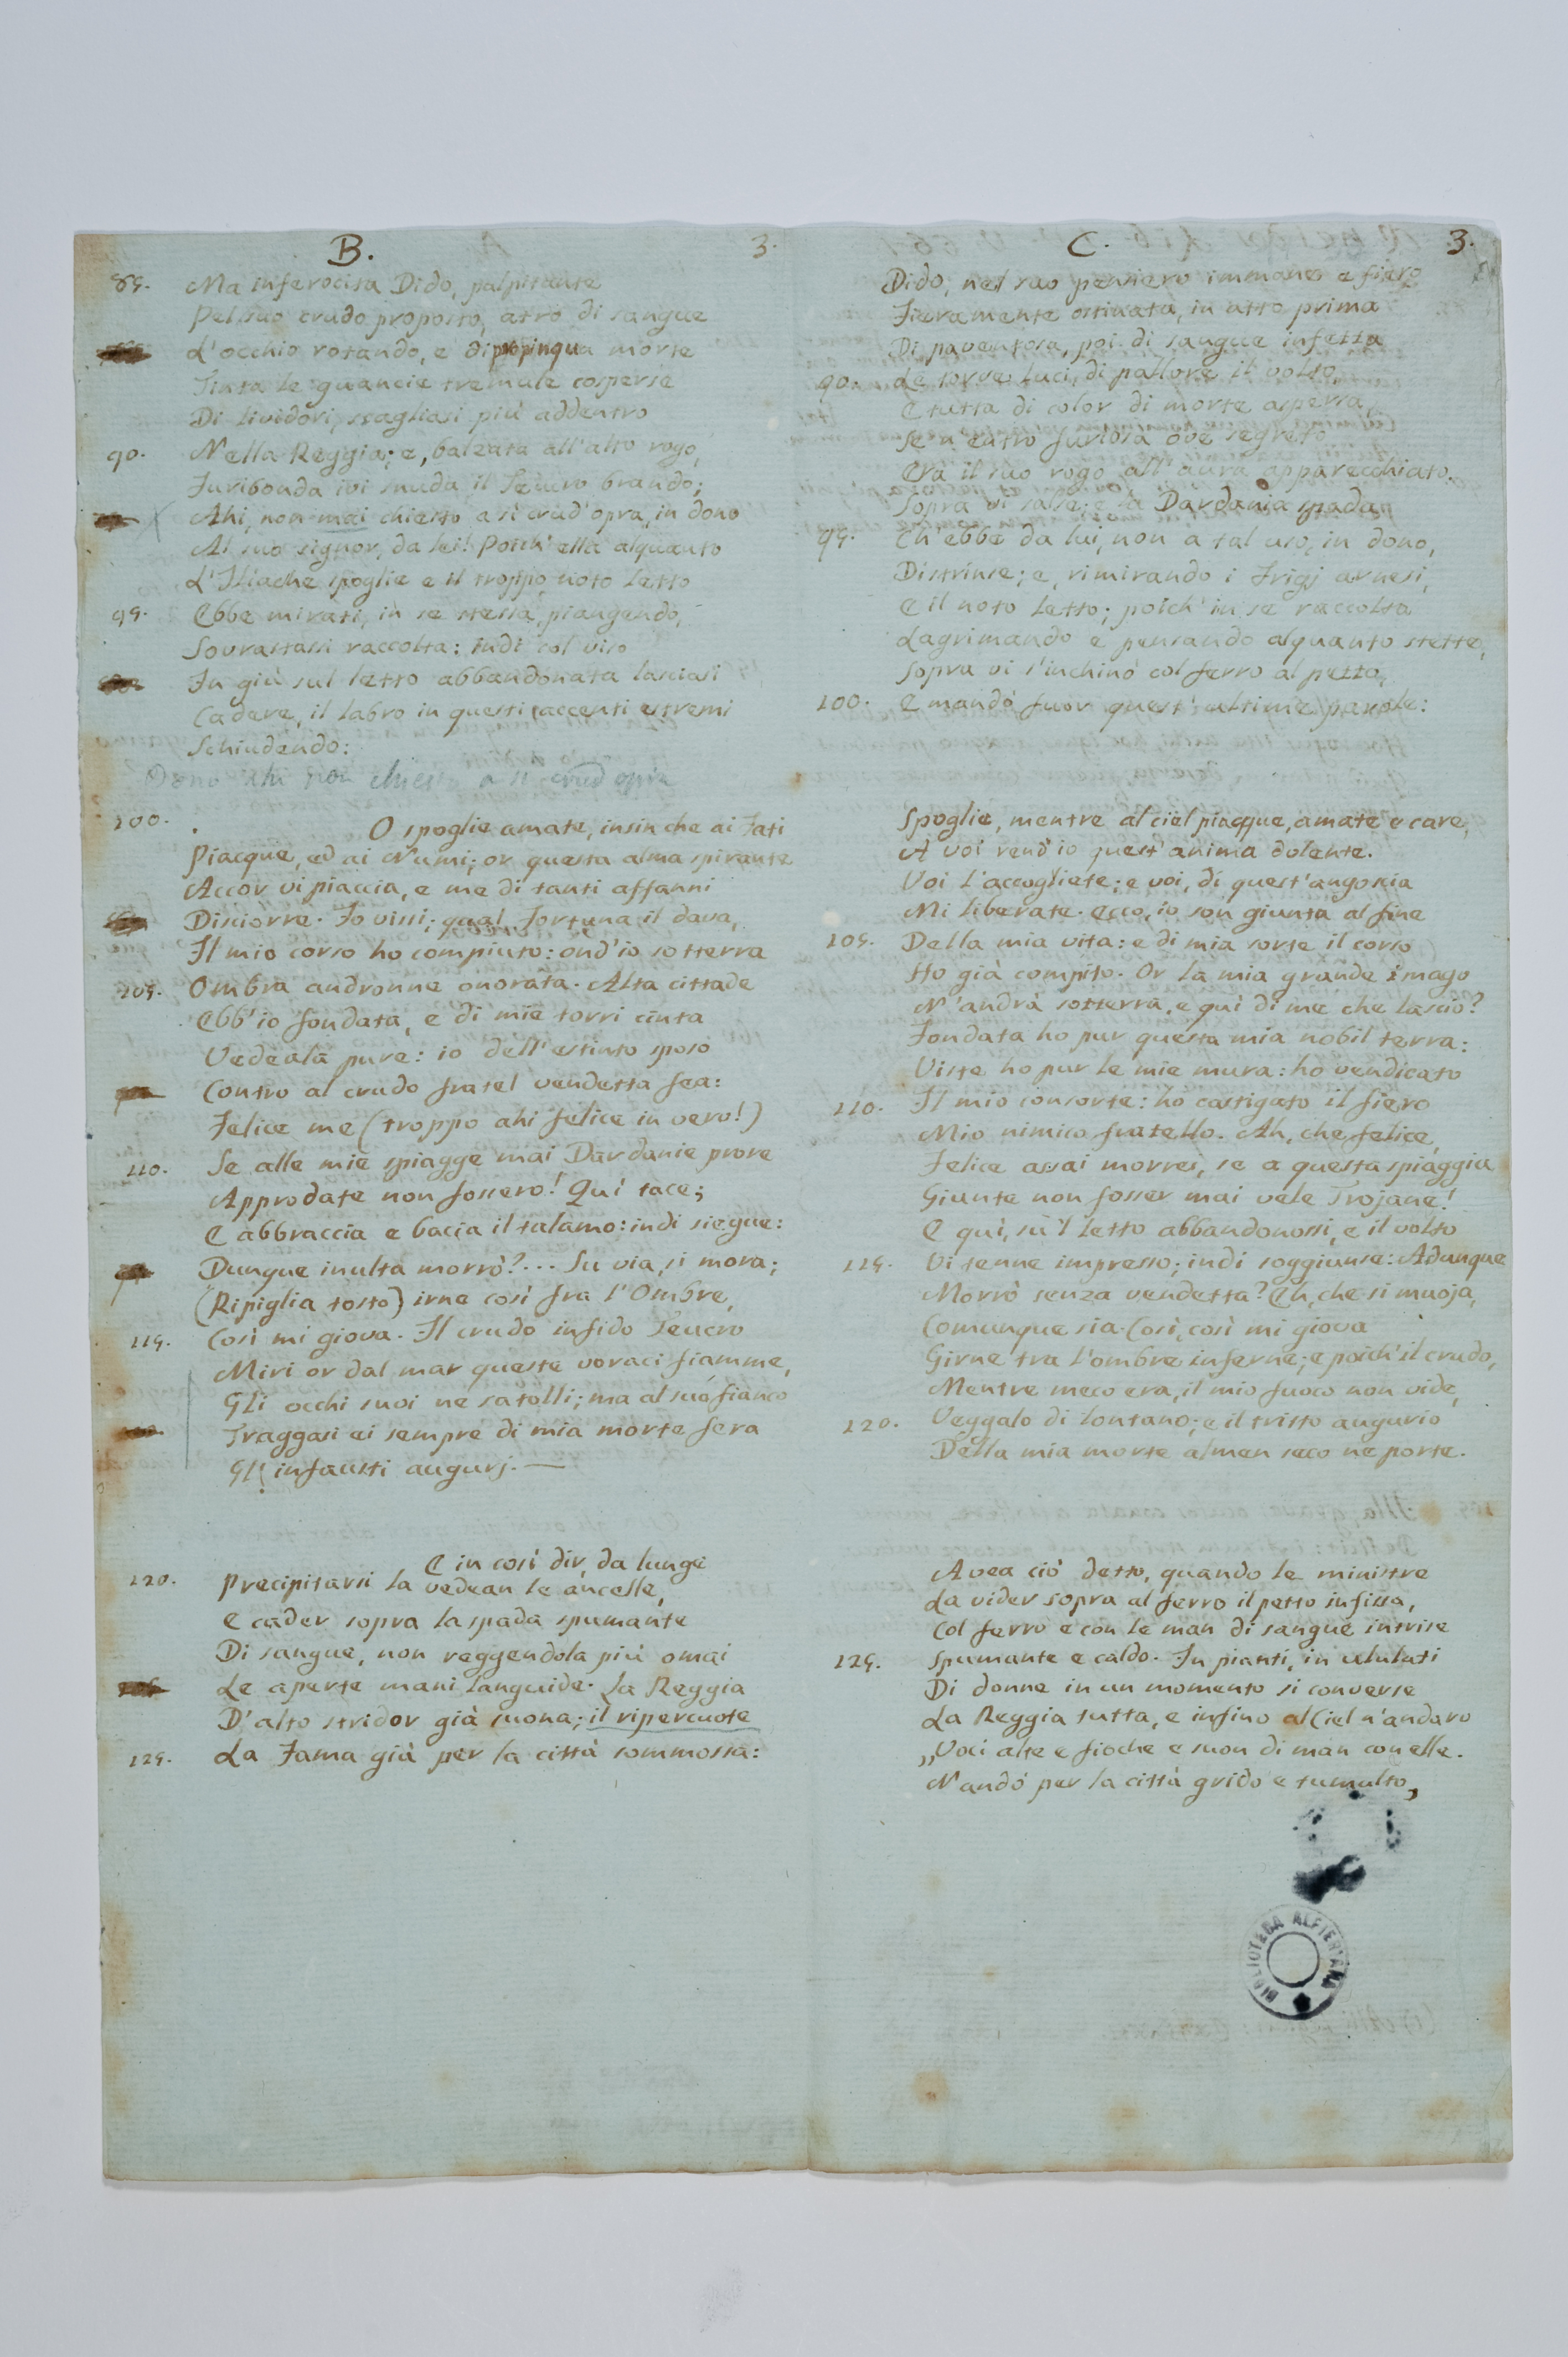 B. 3.
85. Ma inferocita Dido, palpitante
Pel suo crudo proposto, atro di sangue
L'occhio rotando, e di propinqua morte
Tinta le guancie tremule cosperse
Di lividori, scagliasi più addentro
90. Nella Reggia; e, balzata all'alto rogo,
Furibonda ivi snuda il Teucro brando;
Ahi, non mai chiesto a sì crud'opra, in dono
Al suo signor, da lei! Poich'ella alquanto
L'Iliache spoglie e il troppo noto letto
95. Ebbe mirati, in se stessa, piangendo,
Sovrastassi raccolta: indi col viso
In giù sul letto abbandonata lasciasi
Cadere, il labro in questi accenti estremi
Schiudendo:
Dono ahi non chiesto a sì crud opra
100. O spoglie amate, insin che ai Fati
Piacque, ed ai Numi; or questa alma spirante
Accor vi piaccia, e me di tanti affanni
Disciorre. Io vissi; qual Fortuna il dava,
Il mio corso ho compiuto: ond'io sotterra
105. Ombra andronne onorata. Alta cittade
Ebb'io fondata, e di mie torri cinta
Vedeala pure: io dell'estinto sposo
Contro al crudo fratel vendetta fea:
Felice me (troppo ahi felice in vero!)
110. Se alle mie spiagge mai Dardanie prore
Approdate non fossero! Quì tace;
E abbraccia e bacia il talamo: indi siegue:
Dunque inulta morrò?... Su via, si mora;
(Ripiglia tosto) irne così fra l'Ombre,
115. Così mi giova. Il crudo infido Teucro
Miri or dal mar queste voraci fiamme,
Gli occhi suoi ne satolli; ma al suo fianco
Traggasi ei sempre di mia morte fera
Gli infausti augurj. —
E in così dir, da lungi
120. Precipitarsi la vedean le ancelle,
E cader sopra la spada spumante
Di sangue, non reggendola più omai
Le aperte mani languide. La Reggia
D'alto stridor già suona; il ripercuote
125. La Fama già per la città sommossa:
C. 3.
Dido, nel suo pensiero immane e fiero
Fieramente ostinata, in atto prima
Di paventosa, poi di sangue infetta
90. Le torve luci, di pallore il volto,
E tutta di color di morte aspersa,
Se n'entrò furiosa ove segreto
Era il suo rogo all'aura apparecchiato.
Sopra vi salse; e la Dardania spada,
95. Ch'ebbe da lui, non a tal uso, in dono,
Distrinse; e, rimirando i Frigj arnesi,
E il noto letto; poich'in se raccolta
Lagrimando e pensando alquanto stette,
Sopra vi s'inchinò col ferro al petto,
100. E mandò fuor quest'ultime parole:
Spoglie, mentre al ciel piacque, amate e care,
A voi rend'io quest'anima dolente.
Voi l'accogliete; e voi, di quest'angoscia
Mi liberate. ecco, io son giunta al fine
105. Della mia vita: e di mia sorte il corso
Ho già compito. Or la mia grande imago
N'andrà sotterra, e quì di me che lascio?
Fondata ho pur questa mia nobil terra:
Viste ho pur le mie mura: ho vendicato
110. Il mio consorte: ho castigato il fiero
Mio nimico fratello. Ah, che felice,
Felice assai morrei, se a questa spiaggia
Giunte non fosser mai vele Trojane!
E quì, su'l letto abbandonossi, e il volto
115. Vi tenne impresso; indi soggiunse: Adunque
Morrò senza vendetta? Eh, che si muoja,
Comunque sia. Così, così mi giova
Girne tra l'ombre inferne; e poich'il crudo,
Mentre meco era, il mio fuoco non vide,
120. Veggalo di lontano; e il tristo augurio
Della mia morte almen seco ne porte.
Avea ciò detto, quando le ministre
La vider sopra al ferro il petto infissa,
Col ferro e con le man di sangue intrise
125. Spumante e caldo. In pianti, in ululati
Di donne in un momento si converse
La Reggia tutta, e infino al Ciel n'andaro
„Voci alte e fioche e suon di man con elle.
N'andò per la città grido e tumulto,
BIBLIOTECA ALFIERIANA